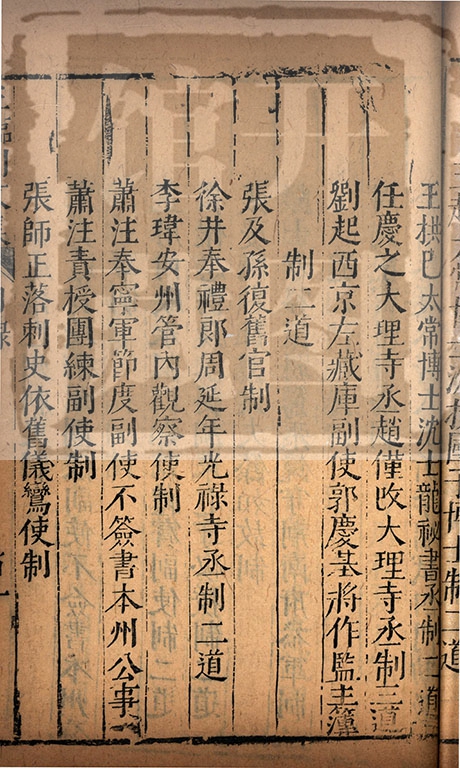 王拱巴太常博士沈士龍祕書丞制二道
任慶之大理寺丞趙僅改大理寺丞制三道
劉起西京左藏庫副使郭慶基將作監主簿
制二道
張及孫復舊官制
徐井奉禮郎周延年光祿寺丞制二道
李瑋安州管內觀察使制
蕭注奉寧軍節度副使不簽書本州公事
蕭注責授團練副使制
張師正落刺史依舊儀鸞使制